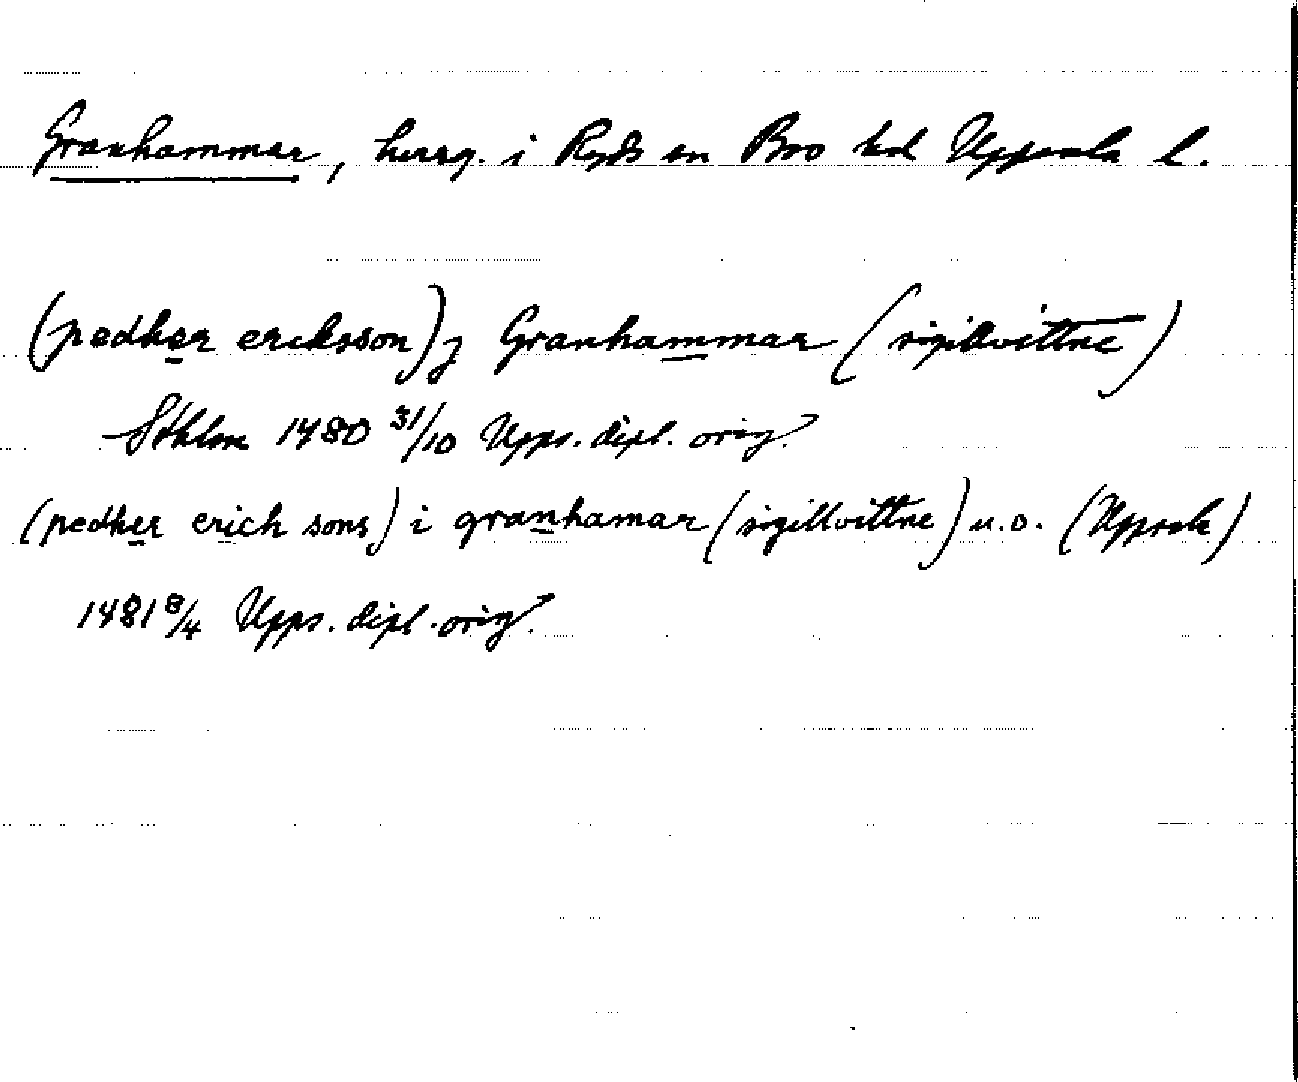 Granhammar, herrg. i Ryds sn Bro hd Uppsala l.
(pedher ericksson) j Granhammar (sigillvittne)
Sthlm 1480 31/10 Upps. dipl. orig.
(pedher erich sons) i granhamar (sigillvittne) u.o. (Uppsala)
1481 8/4 Upps. dipl. orig.